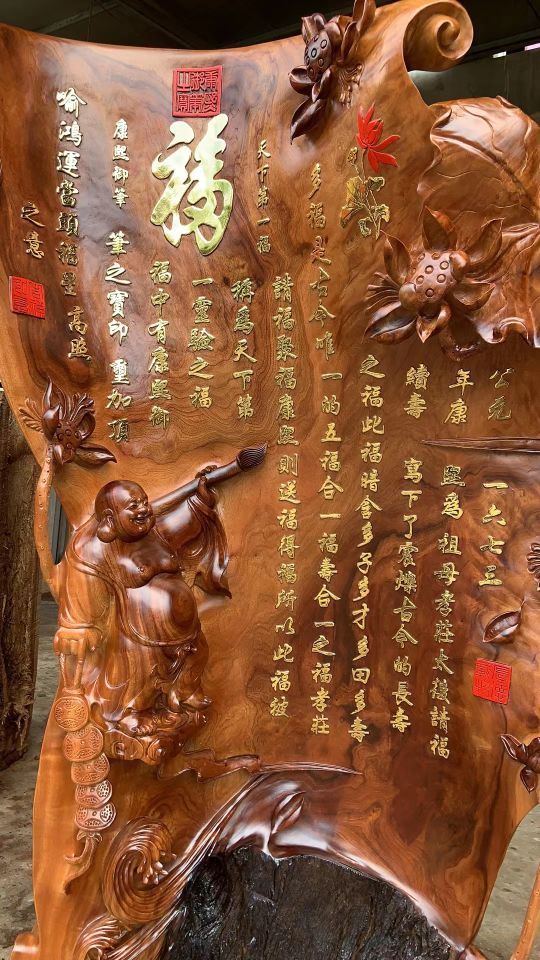 公元一六七三
年康熙為祖母孝莊太後請福
續壽寫下了震爍古今的長壽
之福此福暗含多子多才多田多壽
多福是古今唯一的五福合一福壽合一之福孝莊
請福聚福康熙則送福得福所以此福被
天下第一福
稱為天下第
一靈驗之福
福
福中有康熙御
康熙御筆
筆之寶印重加頂
喻鴻運當頭福星高照
之意